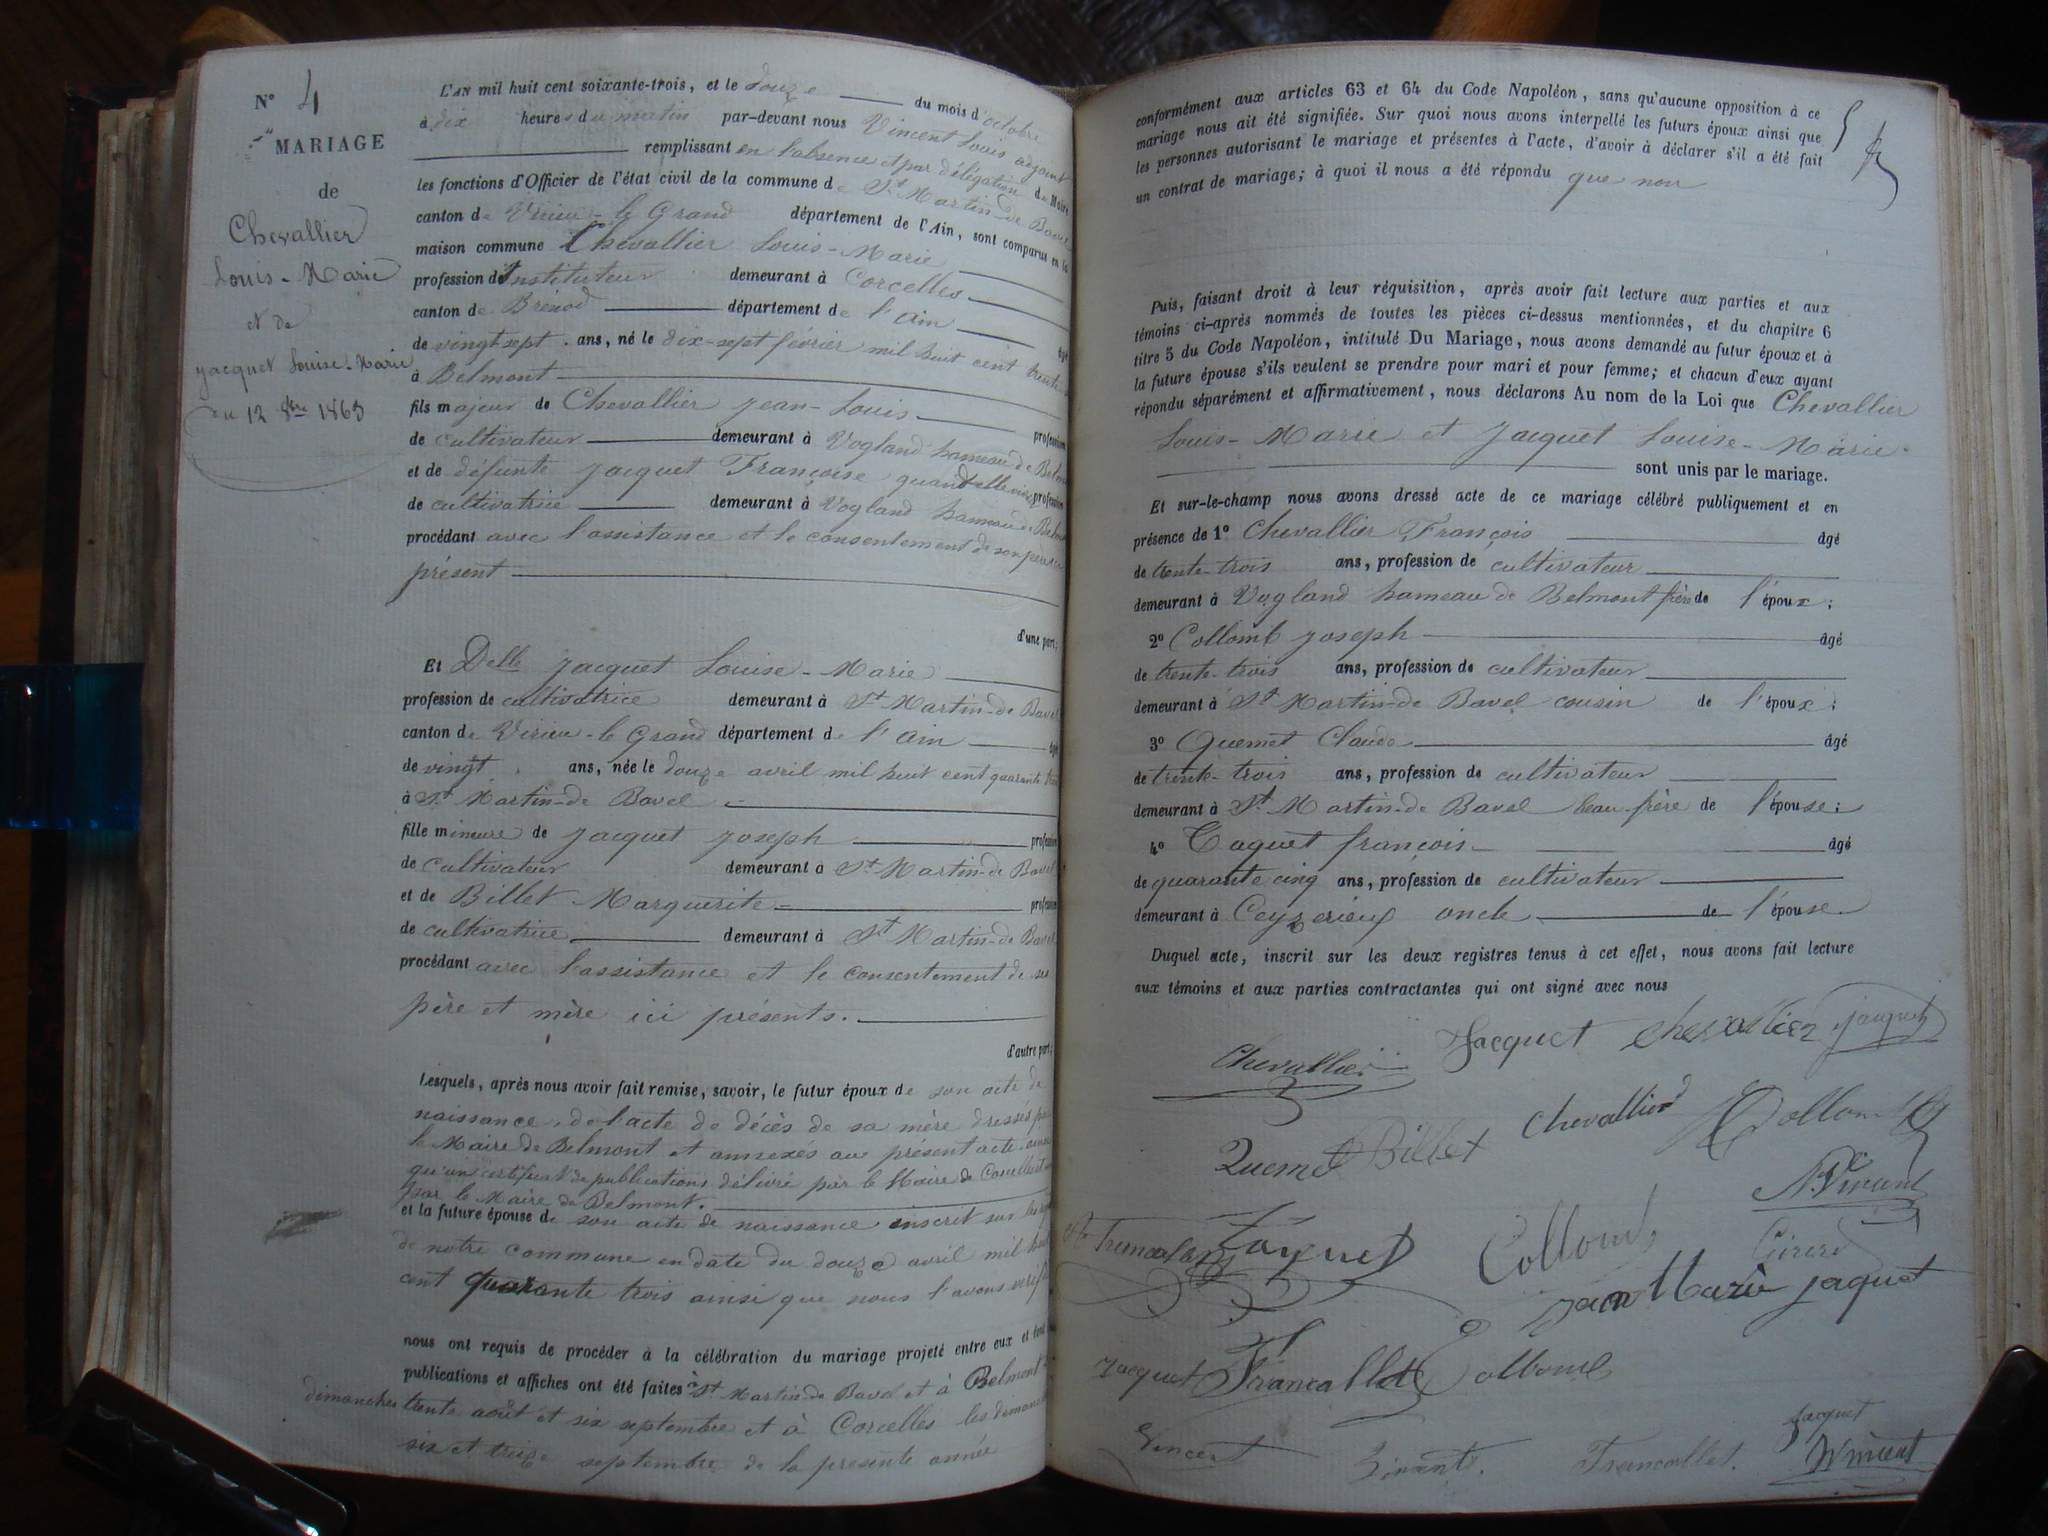 N° 4
MARIAGE
de
Chevallier
Louis-Marie
et de
Jacquet Louise-Marie
du 12 8bre 1863
L'AN mil huit cent soixante-trois, et le douze du mois d'octobre
à dix heures du matin par-devant nous Vincent Louis adjoint
remplissant en l'absence et par délégation du Maire
les fonctions d'Officier de l'état civil de la commune de St Martin-de Bavel
canton de Virieu-le Grand département de l'Ain, sont comparus en la
maison commune Chevallier Louis-Marie
profession d'Instituteur demeurant à Corcelles
canton de Brénod département de l'Ain âgé
de vingt-sept ans, né le dix-sept février mil huit cent trente-
à Belmont
fils majeur de Chevallier Jean-Louis profession
de cultivateur demeurant à Vogland hameau de Belmont
et de défunte Jacquet Françoise quand elle vivait profession
de cultivatrice demeurant à Vogland hameau de Belmont
procédant avec l'assistance et le consentement de son père ici
présent
d'une part;
Et Delle Jacquet Louise-Marie
profession de cultivatrice demeurant à St Martin-de Bavel
canton de Virieu-le Grand département de l'Ain âgée
de vingt ans, née le douze avril mil huit cent quarante trois
à St Martin-de Bavel
fille mineure de Jacquet Joseph profession
de cultivateur demeurant à St Martin-de Bavel
et de Billet Marguerite profession
de cultivatrice demeurant à St Martin-de Bavel
procédant avec l'assistance et le consentement de ses
père et mère ici présents.
d'autre part;
Lesquels, après nous avoir fait remise, savoir, le futur époux de son acte de
naissance, de l'acte de décès de sa mère dressés par
le Maire de Belmont et annexés au présent acte ainsi
qu'un certificat de publications délivré par le Maire de Corcelles et
par le Maire de Belmont.
et la future épouse de son acte de naissance inscrit sur les
de notre commune en date du douze avril mil huit
cent quarante trois ainsi que nous l'avons vérifié
nous ont requis de procéder à la célébration du mariage projeté entre eux et dont
publications et affiches ont été faites à St Martin-de Bavel et à Belmont
dimanches trente août et six septembre et à Corcelles les dimanches
six et treize septembre de la présente année
5
conformément aux articles 63 et 64 du Code Napoléon, sans qu'aucune opposition à ce
mariage nous ait été signifiée. Sur quoi nous avons interpellé les futurs époux ainsi que
les personnes autorisant le mariage et présentes à l'acte, d'avoir à déclarer s'il a été fait
un contrat de mariage; à quoi il nous a été répondu que non
Puis, faisant droit à leur réquisition, après avoir fait lecture aux parties et aux
témoins ci-après nommés de toutes les pièces ci-dessus mentionnées, et du chapitre 6
titre 5 du Code Napoléon, intitulé Du Mariage, nous avons demandé au futur époux et à
la future épouse s'ils veulent se prendre pour mari et pour femme; et chacun d'eux ayant
répondu séparément et affirmativement, nous déclarons Au nom de la Loi que Chevallier
Louis-Marie et Jacquet Louise-Marie
sont unis par le mariage.
Et sur-le-champ nous avons dressé acte de ce mariage célébré publiquement et en
présence de 1° Chevallier François âgé
de trente-trois ans, profession de cultivateur
demeurant à Vogland hameau de Belmont frère de l'époux;
2° Collomb Joseph âgé
de trente-trois ans, profession de cultivateur
demeurant à St Martin-de Bavel cousin de l'époux;
3° Quemet Claude âgé
de trente-trois ans, profession de cultivateur
demeurant à St Martin-de Bavel beau-frère de l'épouse;
4° Taquet françois âgé
de quarante cinq ans, profession de cultivateur
demeurant à Ceyzerieux oncle de l'épouse
Duquel acte, inscrit sur les deux registres tenus à cet effet, nous avons fait lecture
aux témoins et aux parties contractantes qui ont signé avec nous
Jacquet Chevallier Jacquet
Chevallier
Chevallier Collomb
Quemet Billet
Taquet Collomb Girerd
Jean Marie Jaquet
Jacquet Francallet Collomb
Jacquet
Vincent Vincent Francallet. Vincent